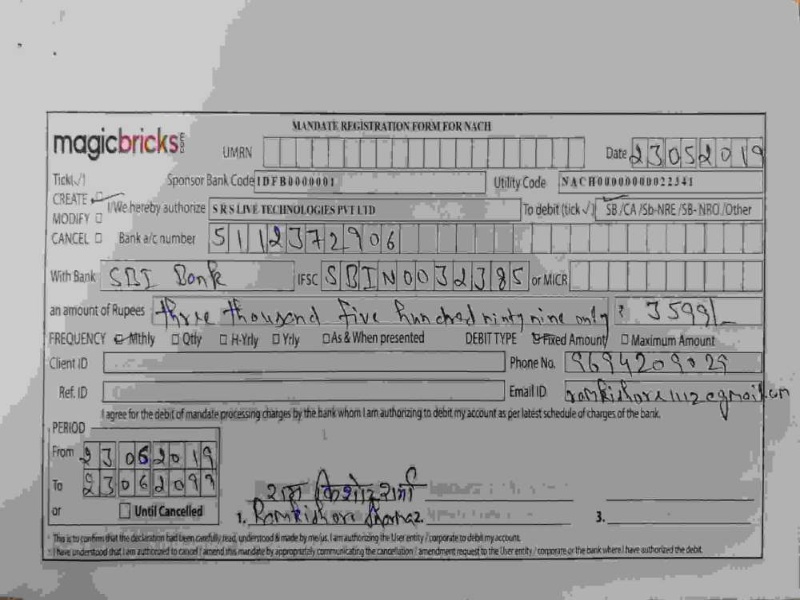 MANDATE REGISTRATION FORM FOR NACH
magicbricks
UMRN Date 23052019
Tick(√) Sponsor Bank Code IDFB0000001 Utility Code NACH00000000022341
CREATE
I/We hereby authorize S R S LIVE TECHNOLOGIES PVT LTD To debit (tick √) SB /CA /Sb-NRE /SB- NRO /Other
MODIFY
CANCEL Bank a/c number 51112372906
With Bank SBI Bank IFSC SBIN0032385 or MICR
an amount of Rupees three thousand five hundred ninty nine only ₹ 3599/-
FREQUENCY Mthly Qtly H-Yrly Yrly As & When presented DEBIT TYPE Fixed Amount Maximum Amount
Client ID Phone No. 9694209029
Ref. ID Email ID ramkishore1112@gmail.com
I agree for the debit of mandate processing charges by the bank whom I am authorizing to debit my account as per latest schedule of charges of the bank.
PERIOD
From 23062019
To 23062099
or Until Cancelled
राम किशोर शर्मा
1. Ramkishore Sharma 2. 3.
This is to confirm that the declaration had been carefully read, understood & made by me/us. I am authorizing the User entity / corporate to debit my account.
I have understood that I am authorized to cancel / amend this mandate by appropriately communicating the cancellation / amendment request to the User entity / corporate or the bank where I have authorized the debit.